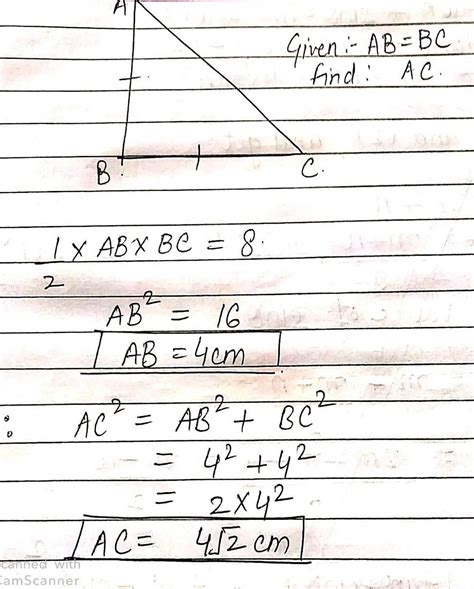 A
Given:- AB=BC
find: AC.
B
C.
1/2 x AB x BC = 8.
AB² = 16
AB = 4cm
: AC² = AB² + BC²
= 4² + 4²
= 2x4²
AC = 4√2 cm
canned with
CamScanner